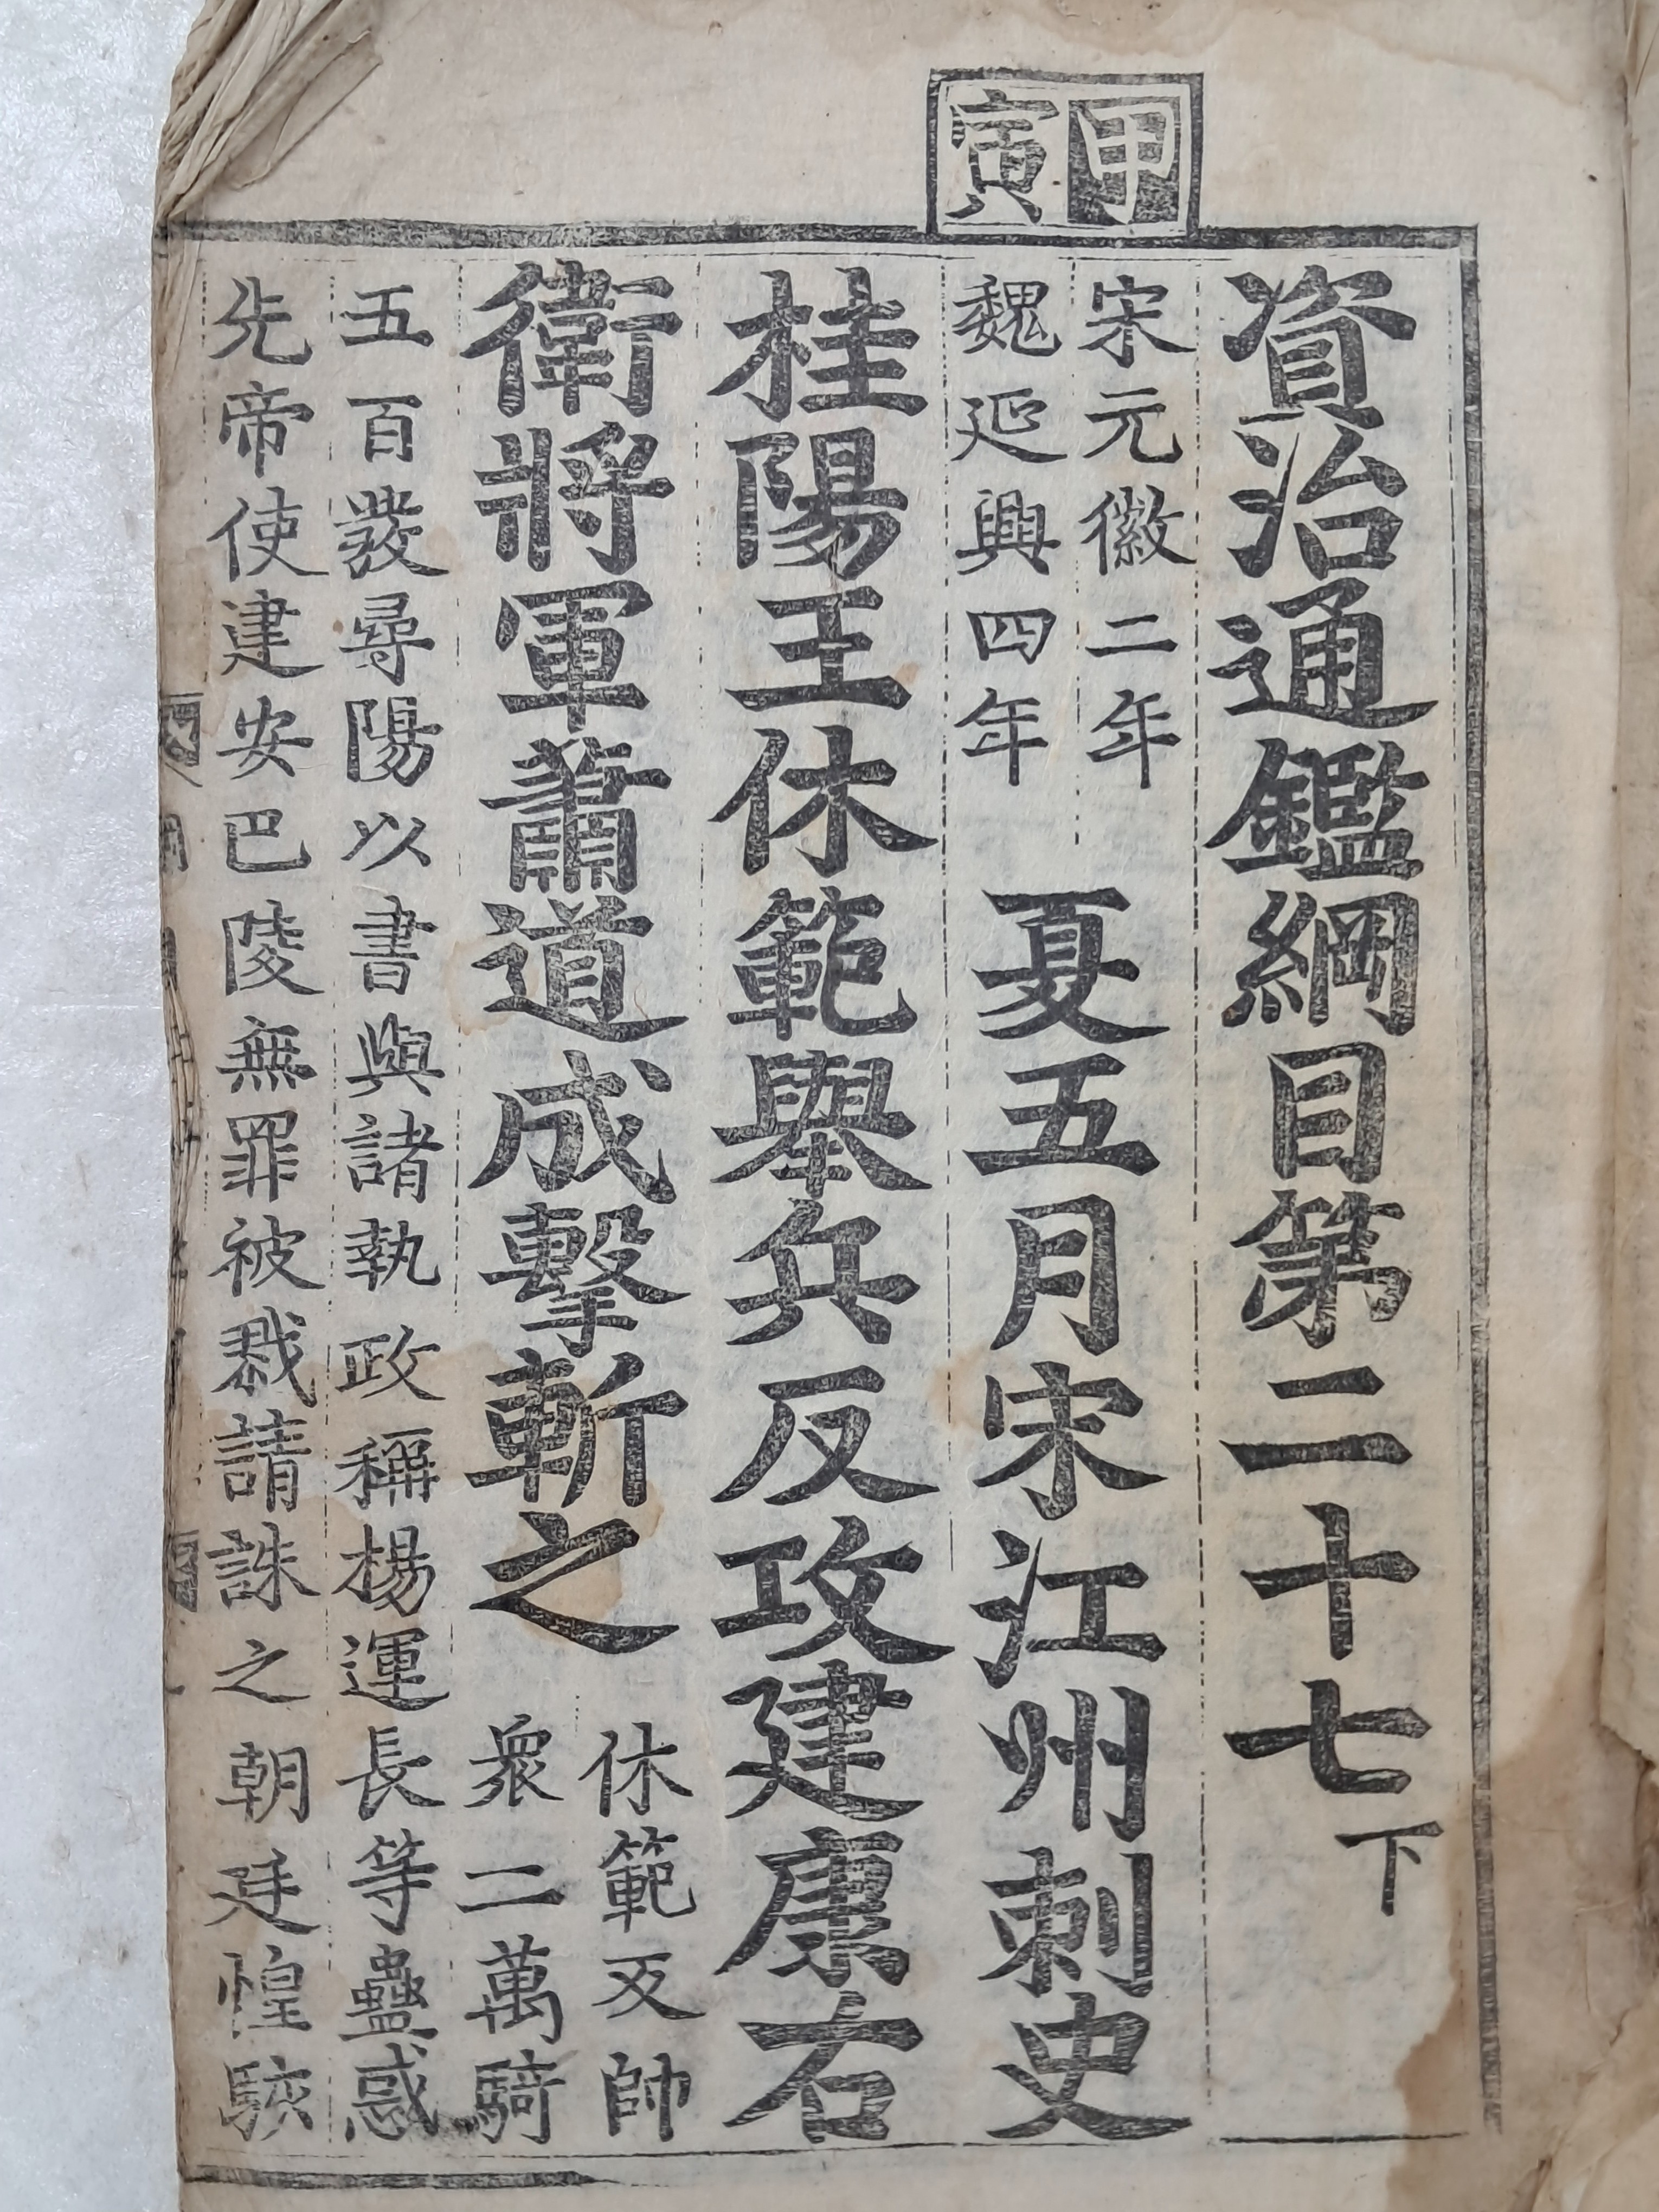 甲寅
資治通鑑綱目第二十七下
宋元徽二年
魏延興四年
夏五月宋江州刺史
桂陽王休範舉兵反攻建康右
衛將軍蕭道成擊斬之
休範反帥
衆二萬騎
五百發尋陽以書與諸執政稱楊運長等蠱惑
先帝使建安巴陵無罪被戮請誅之朝廷惶駭